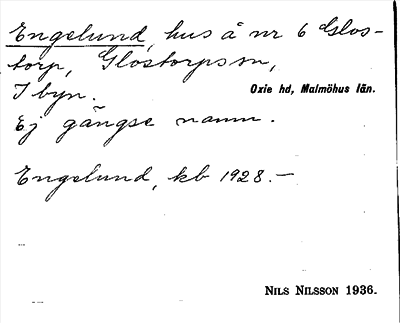 Engelund, hus å nr 6 Glos-
torp, Glostorps sn,
I byn. Oxie hd, Malmöhus län.
Ej gängse namn.
Engelund, kb 1928.—
NILS NILSSON 1936.